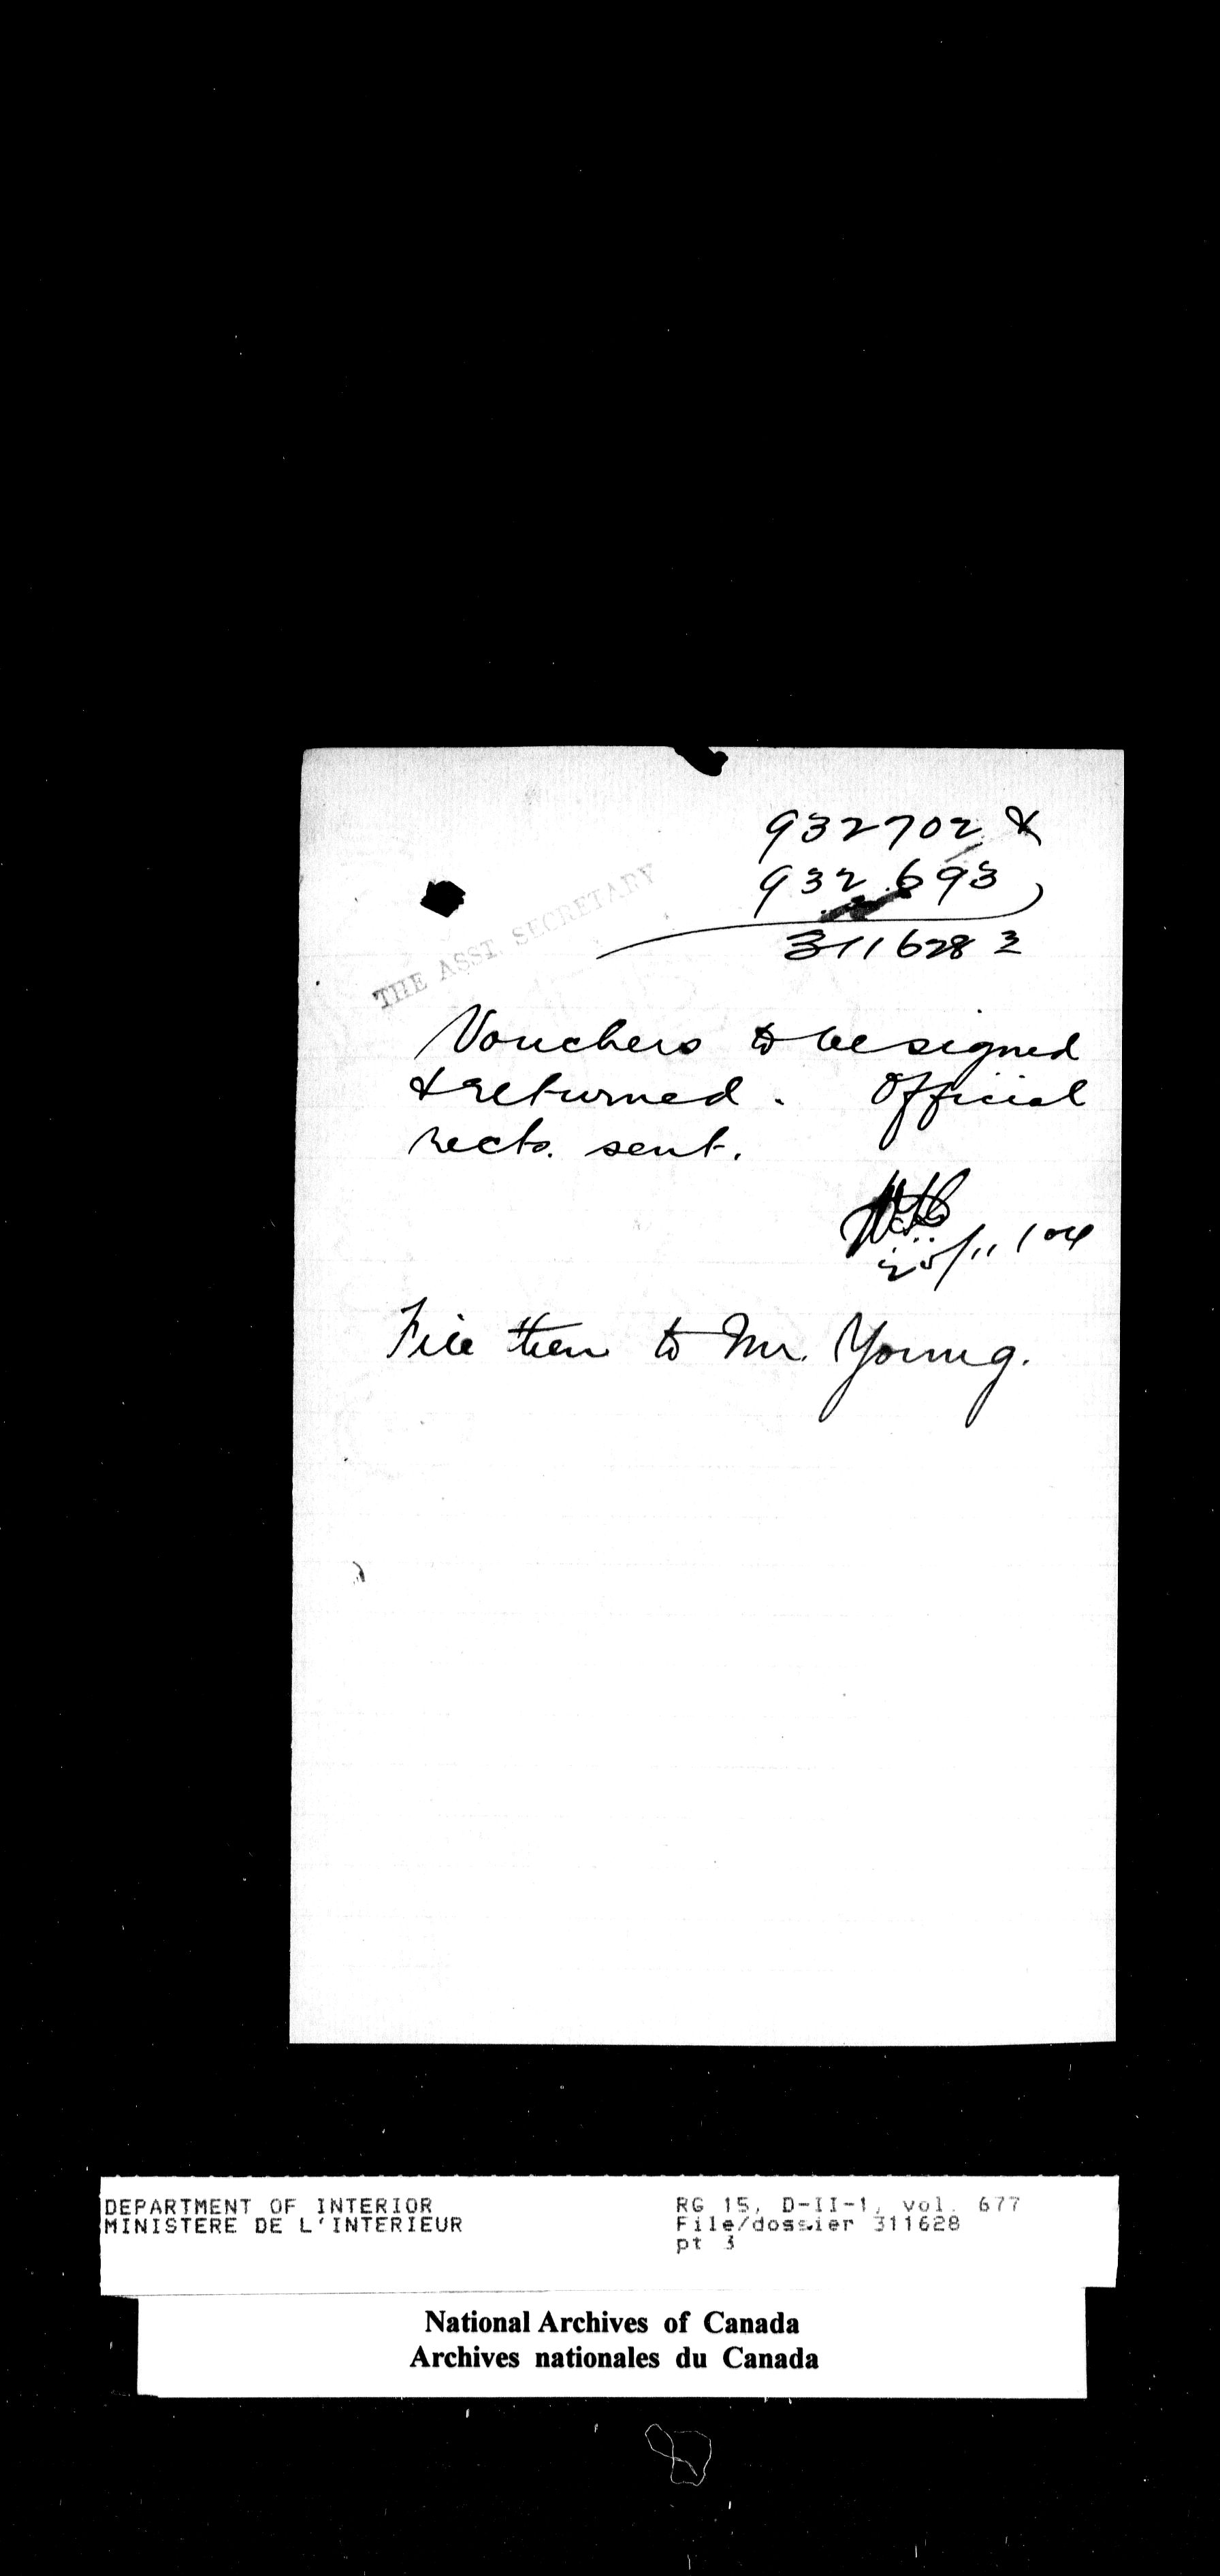 932702 &
932693
311628 3
THE ASST. SECRETARY
Vouchers to be signed
& returned. Official
rects. sent.
25/11/04
File then to Mr. Young.
DEPARTMENT OF INTERIOR
MINISTERE DE L'INTERIEUR
RG 15, D-II-1, vol. 677
File/dossier 311628
pt 3
National Archives of Canada
Archives nationales du Canada